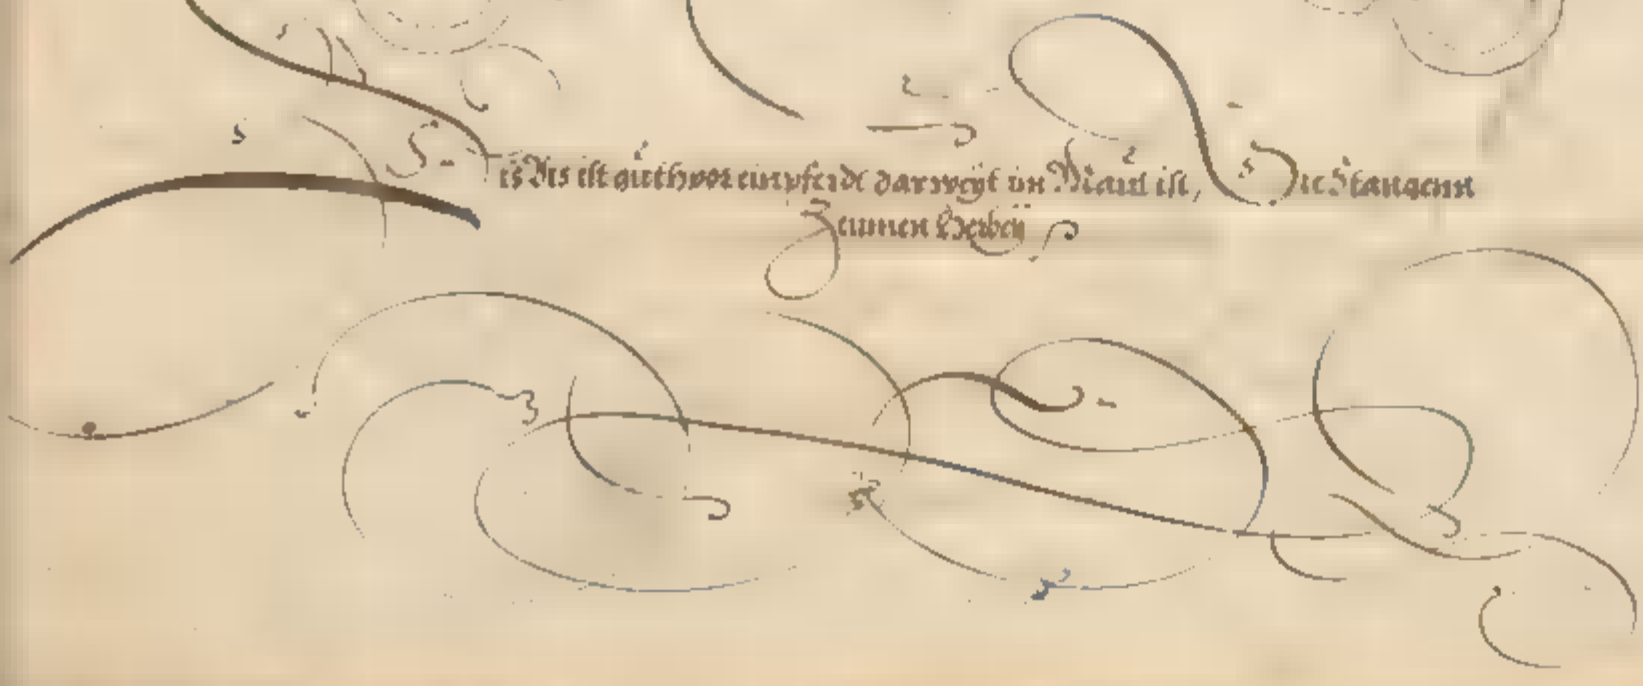 Dis Bis ist guth vor ein pferdt dar weyt im Maul ist, Die Stangenn
Zeimen Herbeÿ